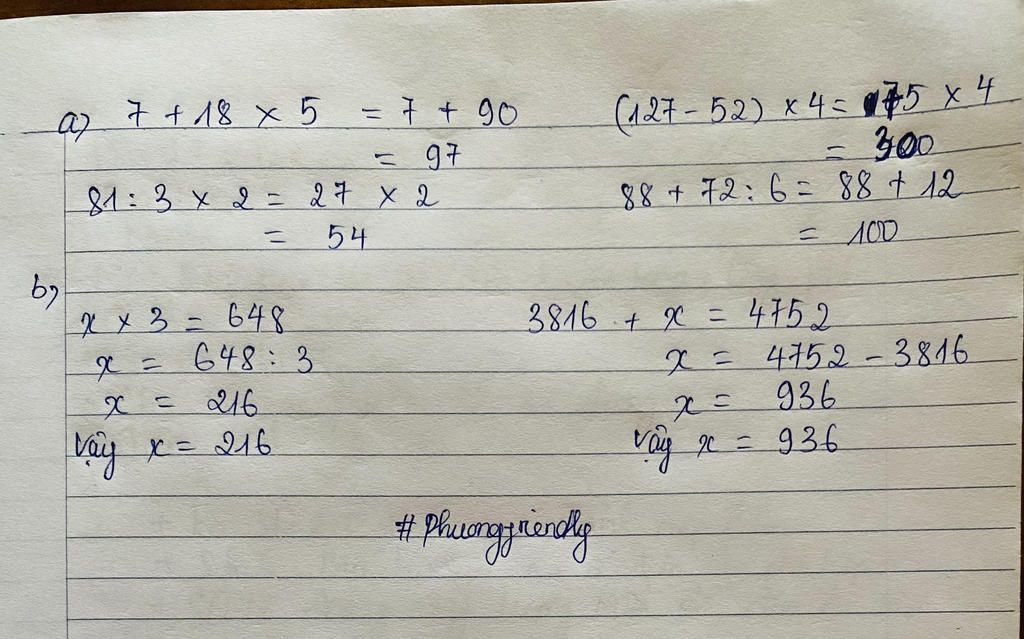 a) 7 + 18 × 5 = 7 + 90
= 97
81 : 3 × 2 = 27 × 2
= 54
(127 - 52) × 4 = 75 × 4
= 300
88 + 72 : 6 = 88 + 12
= 100
b)
x × 3 = 648
x = 648 : 3
x = 216
Vậy x = 216
3816 + x = 4752
x = 4752 - 3816
x = 936
Vậy x = 936
# Phuongfriendly